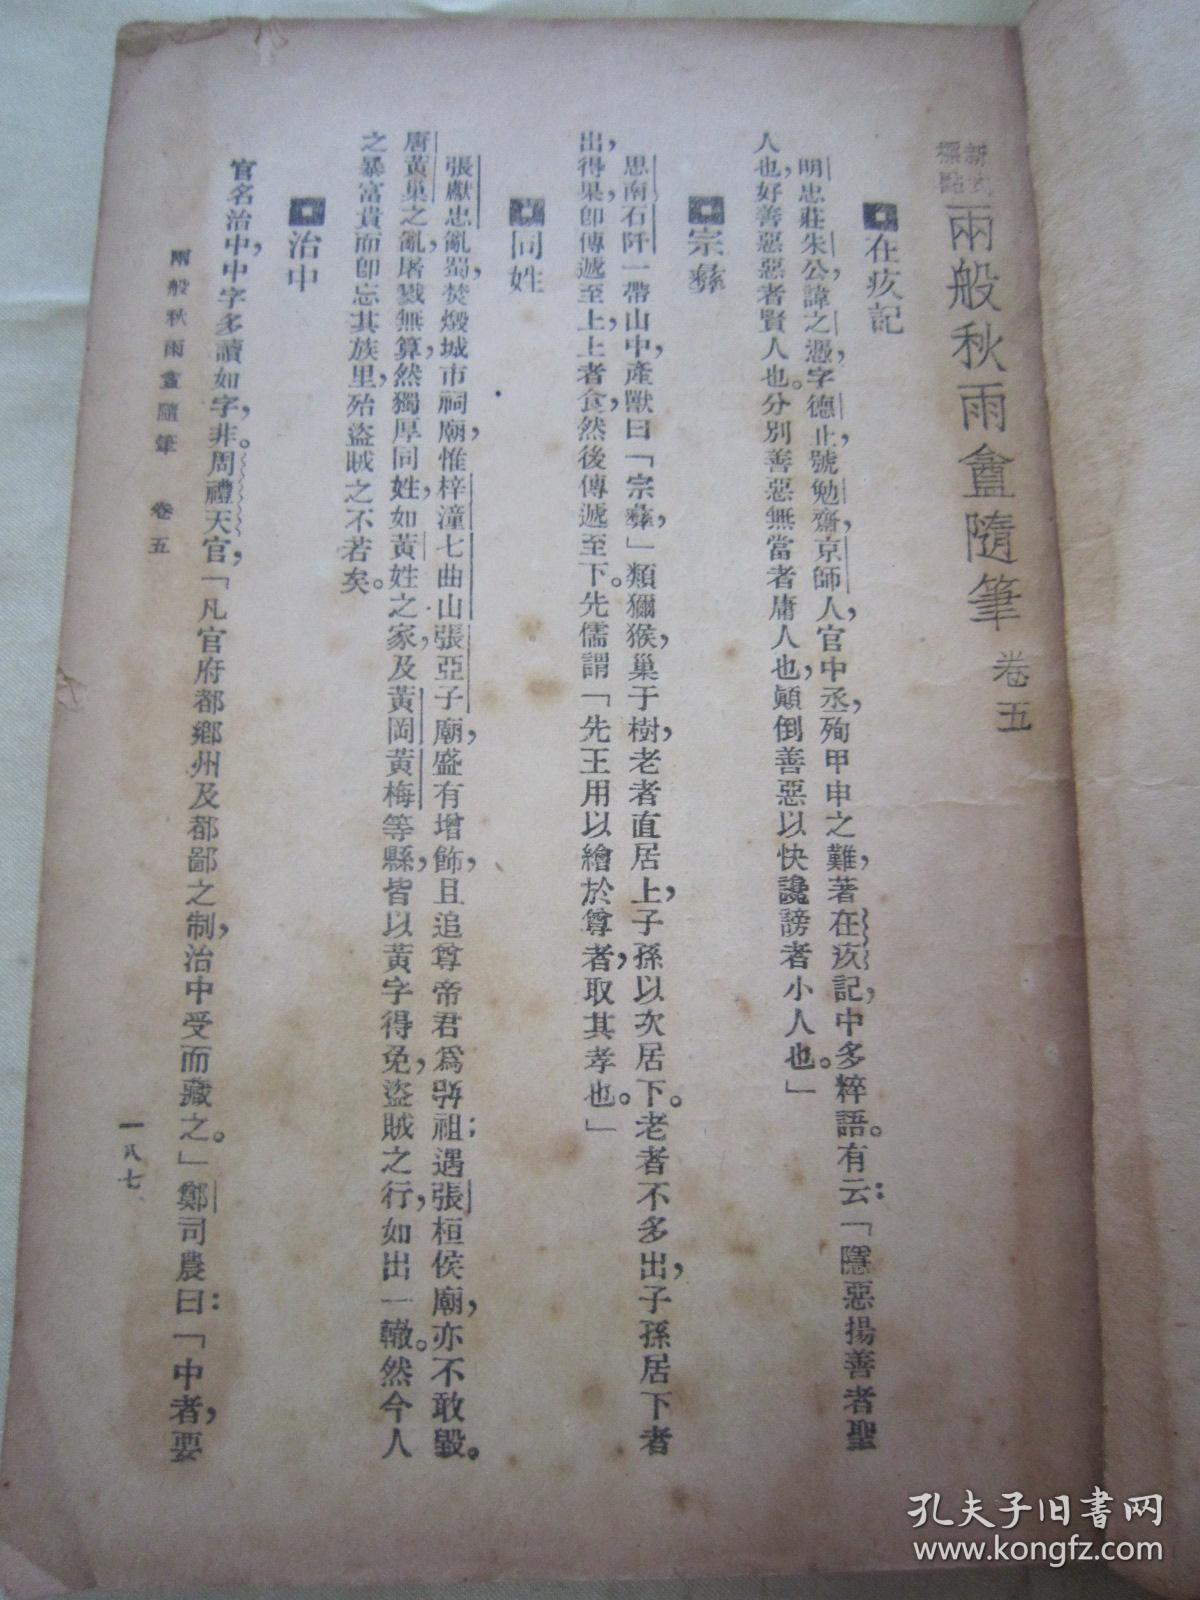 新式標點兩般秋雨盦隨筆 卷五
在疚記
明忠莊朱公，諱之馮，字德止，號勉齋，京師人，官中丞，殉甲申之難，著在疚記，中多粹語。有云：「隱惡揚善者聖
人也，好善惡惡者賢人也。分別善惡無當者庸人也，顛倒善惡以快讒謗者小人也。」
宗彝
思南石阡一帶山中，產獸曰「宗彝，」類獼猴，巢于樹，老者直居上，子孫以次居下。老者不多出，子孫居下者
出，得果，卽傳遞至上，上者食，然後傳遞至下。先儒謂「先王用以繪於尊者，取其孝也。」
同姓
張獻忠亂蜀，焚燬城市祠廟，惟梓潼七曲山張亞子廟，盛有增飾，且追尊帝君爲始祖；遇張桓侯廟，亦不敢毀。
唐黃巢之亂，屠戮無算，然獨厚同姓，如黃姓之家，及黃岡黃梅等縣，皆以黃字得免，盜賊之行，如出一轍。然今人
之暴富貴而卽忘其族里，殆盜賊之不若矣。
治中
官名治中，中字多讀如字，非。周禮天官，「凡官府都鄉州及都鄙之制，治中受而藏之。」鄭司農曰：「中者，要
兩般秋雨盦隨筆 卷五
一八七
孔夫子旧书网
www.kongfz.com